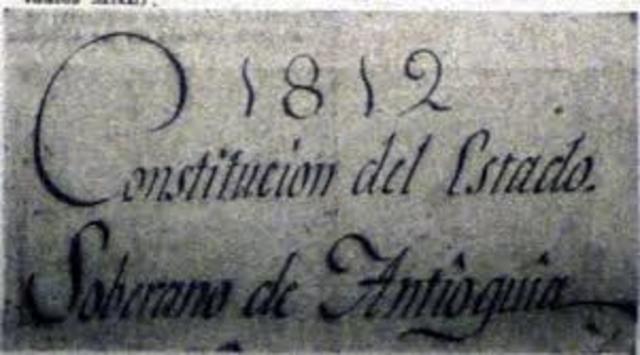 1812
Constitucion del Estado.
Soberano de Antioquia